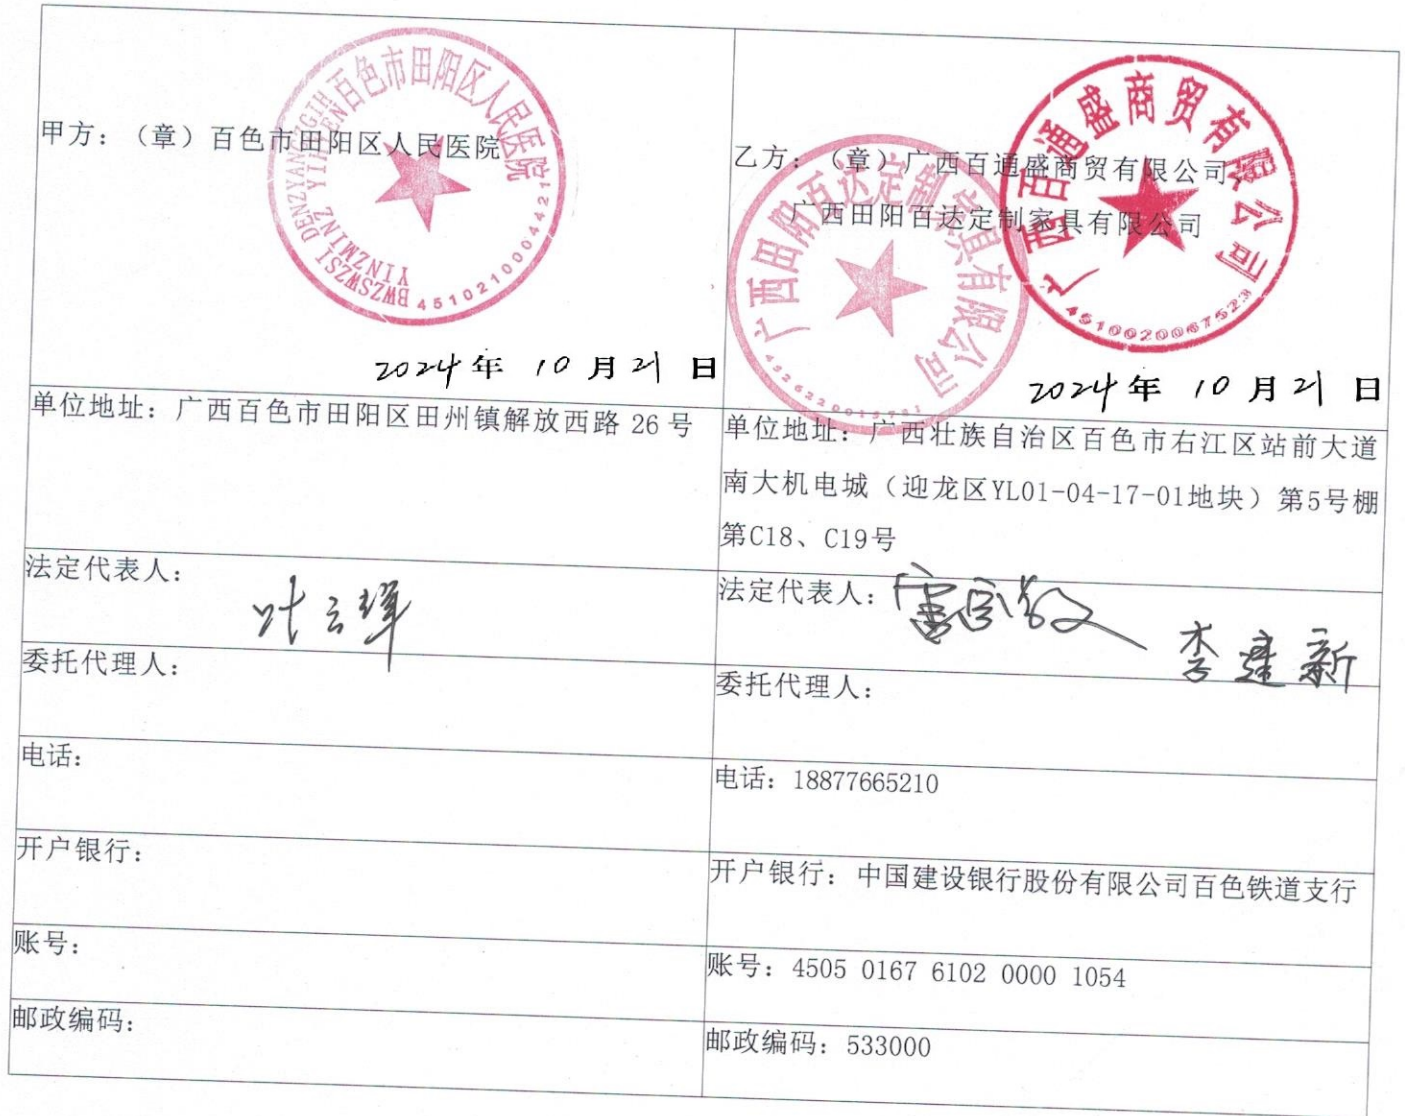 甲方：（章）百色市田阳区人民医院
百色市田阳区人民医院
BWZSWZSI DENZYANGZGIH YINZMINZ YIHYEN
4510210004421
2024年 10月21日
乙方：（章）广西百通盛商贸有限公司、
广西田阳百达定制家具有限公司
广西百通盛商贸有限公司
4510020067523
广西田阳百达定制家具有限公司
2024年 10月21日
单位地址：广西百色市田阳区田州镇解放西路 26 号
单位地址：广西壮族自治区百色市右江区站前大道
南大机电城（迎龙区YL01-04-17-01地块）第5号棚
第C18、C19号
法定代表人：
叶云辉
法定代表人：
李建新
委托代理人：
委托代理人：
电话：
电话：18877665210
开户银行：
开户银行：中国建设银行股份有限公司百色铁道支行
账号：
账号：4505 0167 6102 0000 1054
邮政编码：
邮政编码：533000